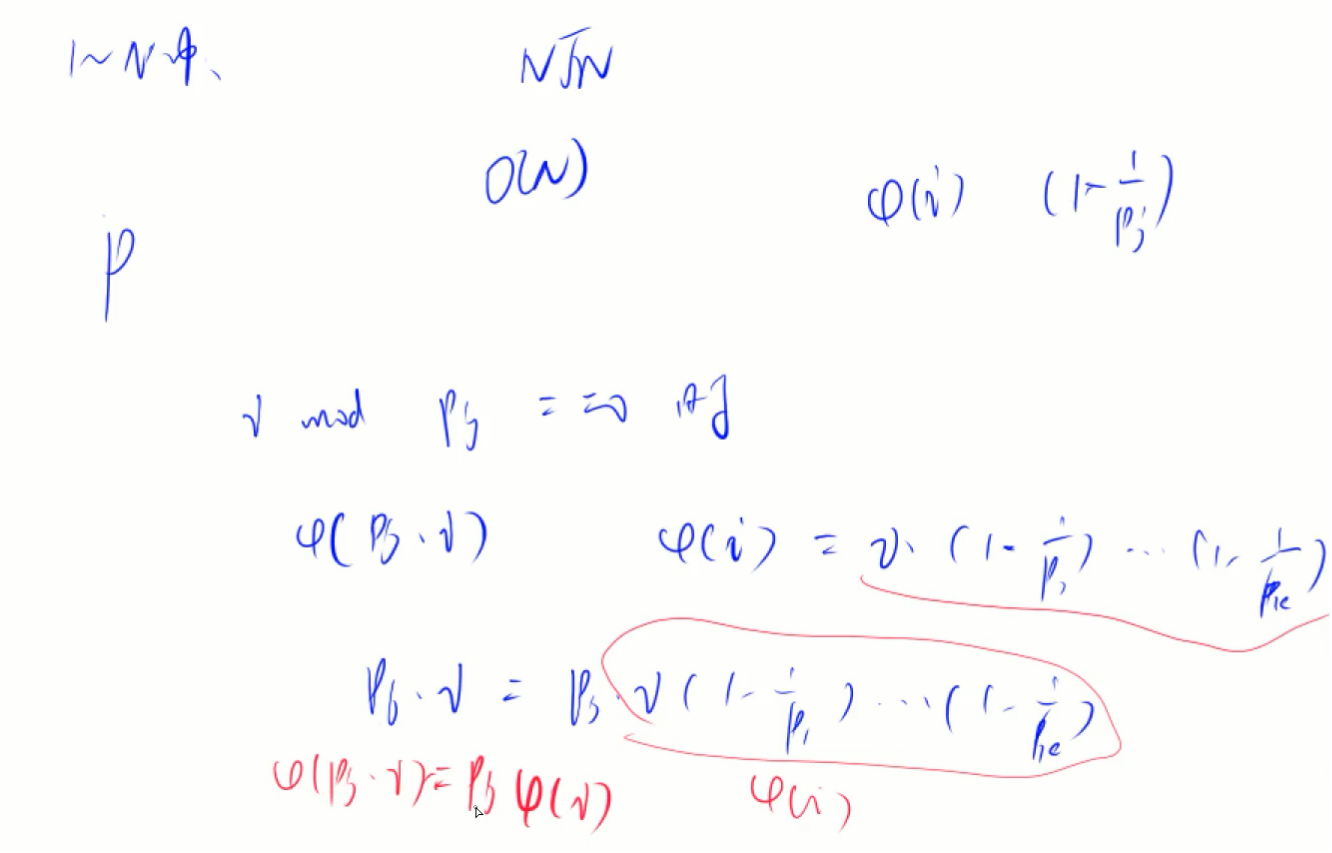 1~N中、
N√N
O(N)
φ(i) (1-1/pj)
P
i mod pj ==0 时
φ(pj·i) φ(i) = i·(1-1/p1)...(1-1/pk)
pj·i = pj·i(1-1/p1)...(1-1/pk)
φ(pj·i)=pj φ(i) φ(i)